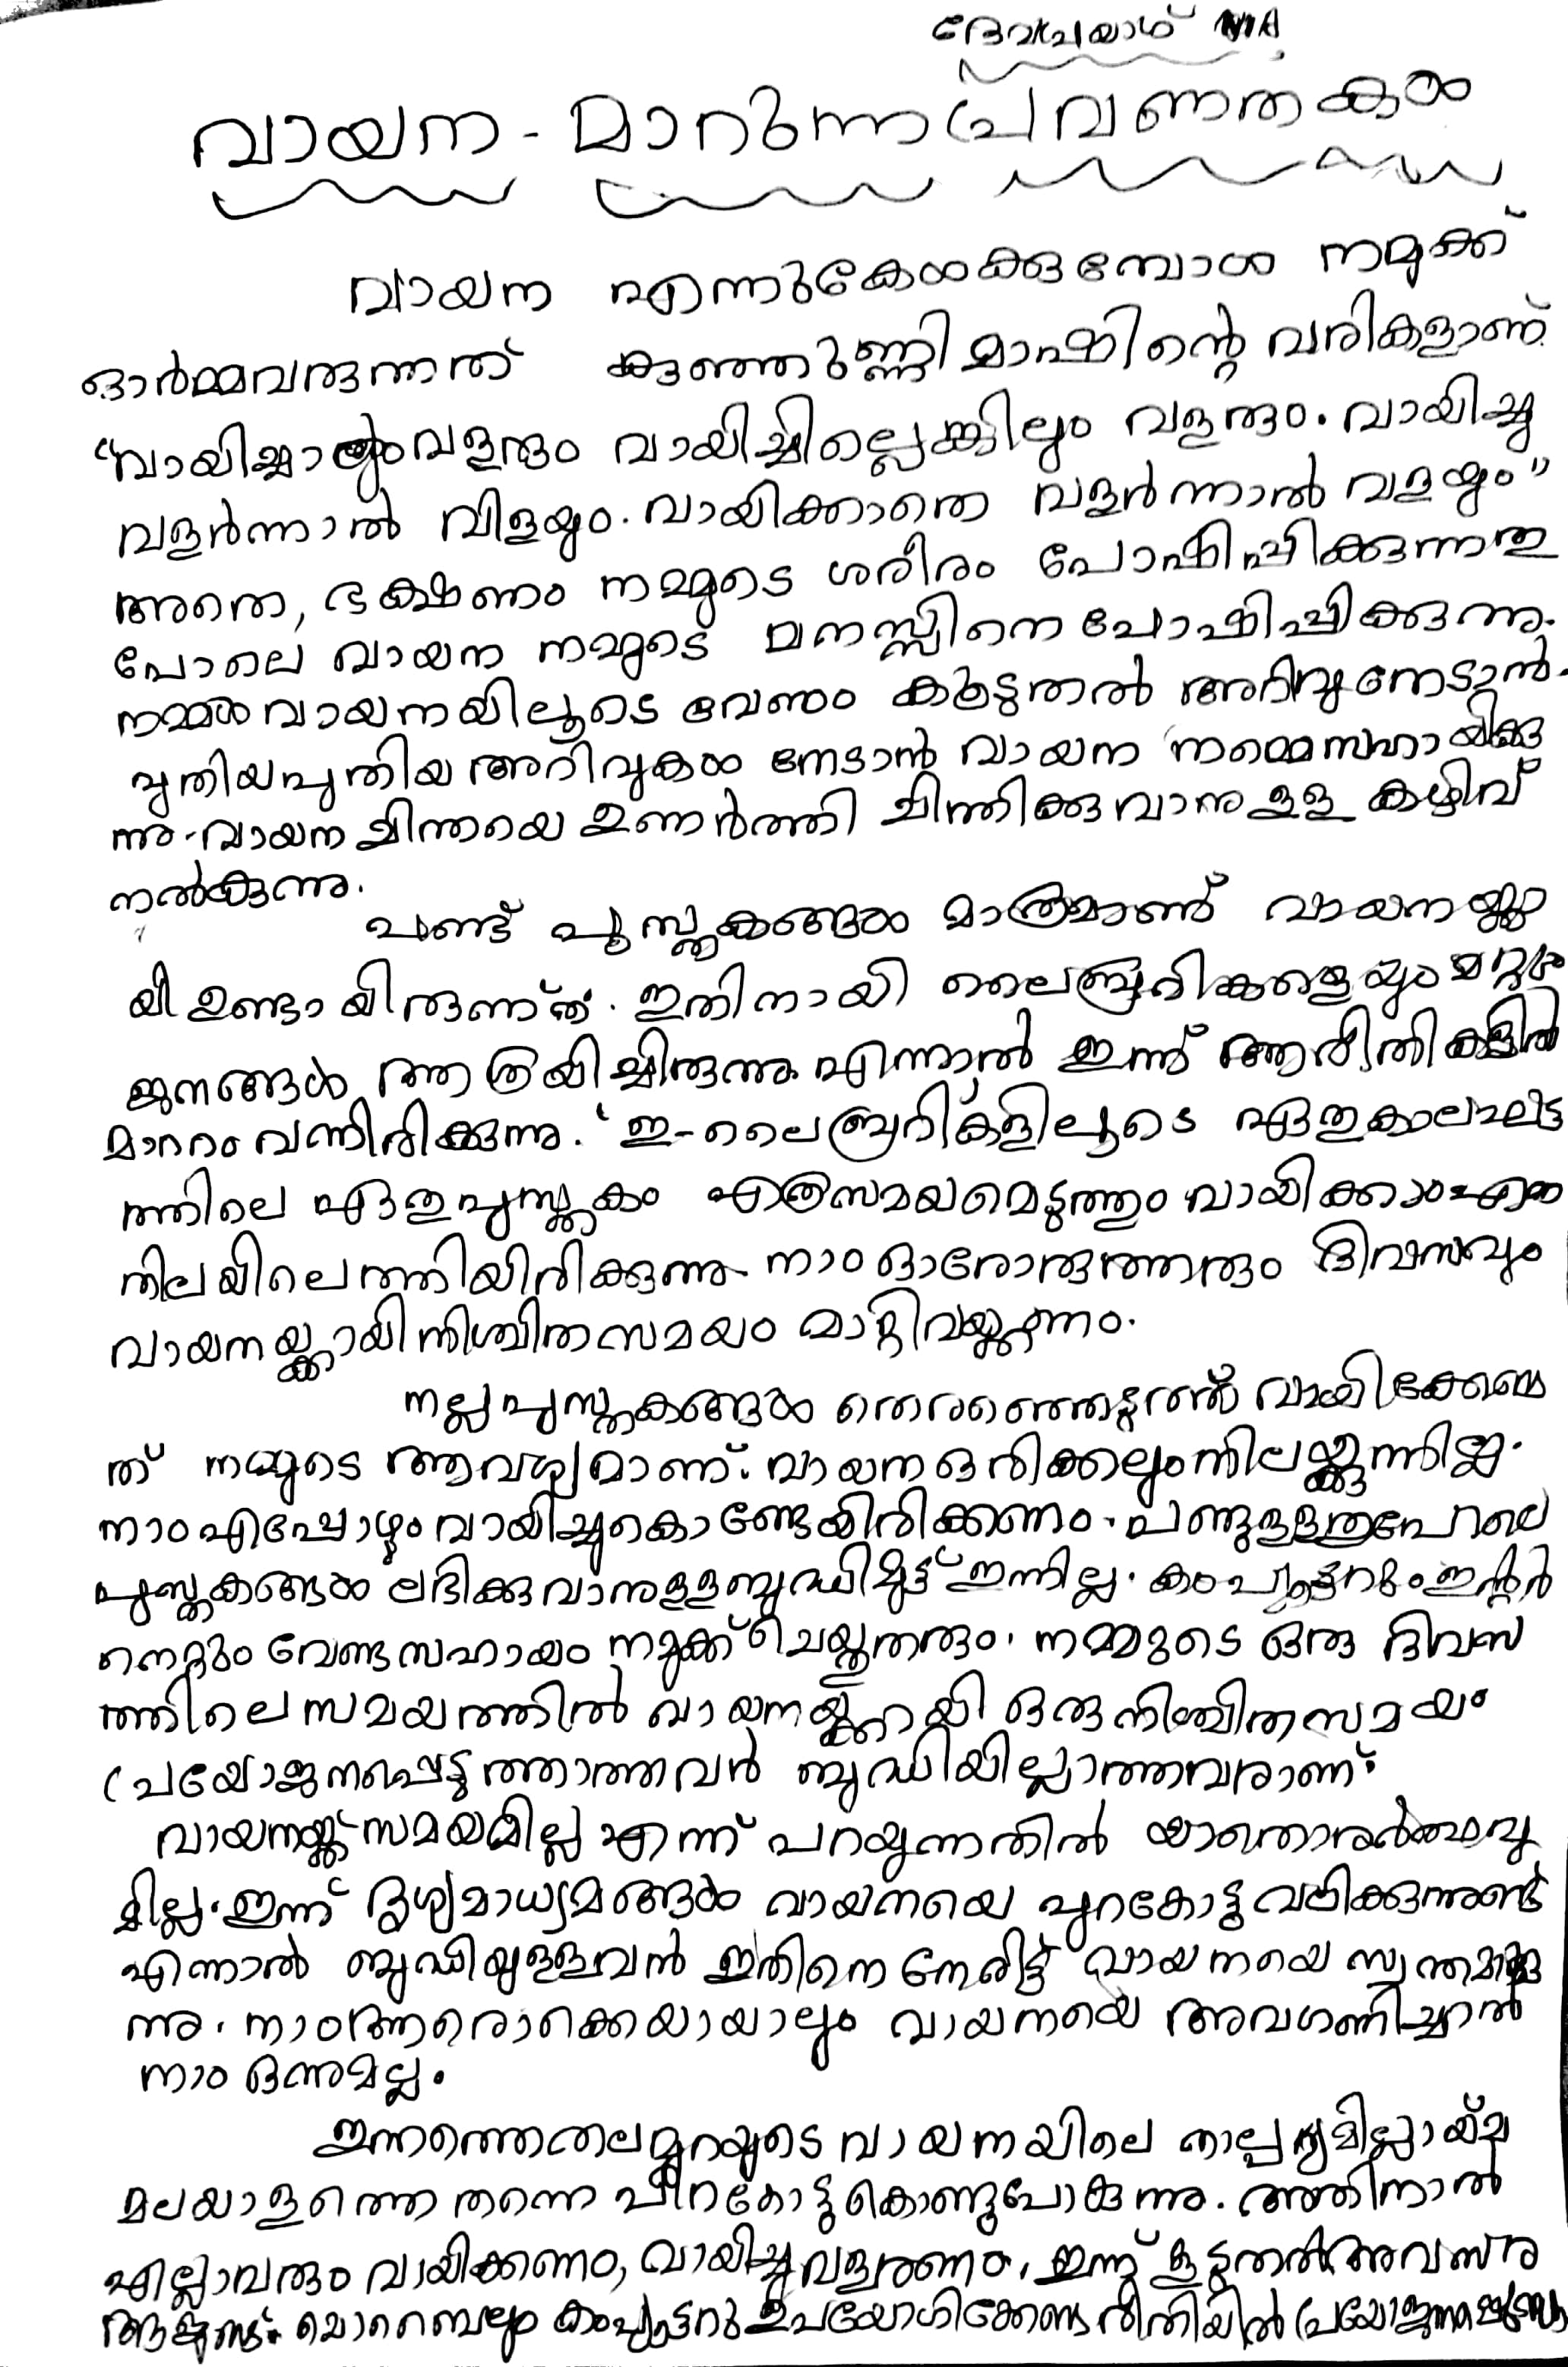 ദേവപ്രയാഗ്
വായന - മാറുന്ന പ്രവണതകൾ
വായന എന്നുകേൾക്കുമ്പോൾ നമുക്ക്
ഓർമ്മവരുന്നത് കുഞ്ഞുണ്ണി മാഷിന്റെ വരികളാണ്.
“വായിച്ചാലും വളരും വായിച്ചില്ലെങ്കിലും വളരും. വായിച്ചു
വളർന്നാൽ വിളയും. വായിക്കാതെ വളർന്നാൽ വളയും”
അതെ, ഭക്ഷണം നമ്മുടെ ശരീരം പോഷിപ്പിക്കുന്നതു
പോലെ വായന നമ്മുടെ മനസ്സിനെ പോഷിപ്പിക്കുന്നു.
നമ്മൾ വായനയിലൂടെ വേണം കൂടുതൽ അറിവു നേടാൻ.
പുതിയപുതിയ അറിവുകൾ നേടാൻ വായന നമ്മെ സഹായിക്കു
ന്നു. വായന ചിന്തയെ ഉണർത്തി ചിന്തിക്കുവാനുള്ള കഴിവ്
നൽകുന്നു.
പണ്ട് പുസ്തകങ്ങൾ മാത്രമാണ് വായനയ്ക്കാ
യി ഉണ്ടായിരുന്നത്. ഇതിനായി ലൈബ്രറികളെയും മറ്റും
ജനങ്ങൾ ആശ്രയിച്ചിരുന്നു. എന്നാൽ ഇന്ന് ആ രീതികളിൽ
മാററം വന്നിരിക്കുന്നു. ഇ-ലൈബ്രറികളിലൂടെ ഏതുകാലഘട്ട
ത്തിലെ ഏതുപുസ്തകം എത്രസമയമെടുത്തും വായിക്കാം എന്ന
നിലയിലെത്തിയിരിക്കുന്നു. നാം ഓരോരുത്തരും ദിവസവും
വായനയ്ക്കായി നിശ്ചിതസമയം മാറ്റിവയ്ക്കണം.
നല്ല പുസ്തകങ്ങൾ തെരഞ്ഞെടുത്ത് വായിക്കേണ്ട
ത് നമ്മുടെ ആവശ്യമാണ്. വായന ഒരിക്കലും നിലയ്ക്കുന്നില്ല.
നാം എപ്പോഴും വായിച്ചുകൊണ്ടേയിരിക്കണം. പണ്ടുള്ളതുപോലെ
പുസ്തകങ്ങൾ ലഭിക്കുവാനുള്ള ബുദ്ധിമുട്ട് ഇന്നില്ല. കംപ്യൂട്ടറും ഇന്റർ
നെറ്റും വേണ്ട സഹായം നമുക്ക് ചെയ്തുതരും. നമ്മുടെ ഒരു ദിവസ
ത്തിലെ സമയത്തിൽ വായനയ്ക്കായി ഒരു നിശ്ചിതസമയം
പ്രയോജനപ്പെടുത്താത്തവർ ബുദ്ധിയില്ലാത്തവരാണ്.
വായനയ്ക്ക് സമയമില്ല എന്ന് പറയുന്നതിൽ യാതൊരർത്ഥവു
മില്ല. ഇന്ന് ദൃശ്യമാധ്യമങ്ങൾ വായനയെ പുറകോട്ടു വലിക്കുന്നുണ്ട്
എന്നാൽ ബുദ്ധിയുള്ളവൻ ഇതിനെ നേരിട്ട് വായനയെ സ്വന്തമാക്കു
ന്നു. നാം ആരൊക്കെയായാലും വായനയെ അവഗണിച്ചാൽ
നാം ഒന്നുമല്ല.
ഇന്നത്തെ തലമുറയുടെ വായനയിലെ താല്പര്യമില്ലായ്മ
മലയാളത്തെ തന്നെ പിറകോട്ടു കൊണ്ടുപോകുന്നു. അതിനാൽ
എല്ലാവരും വായിക്കണം, വായിച്ചു വളരണം. ഇന്ന് കൂടുതൽ അവസര
മൊബൈലും കംപ്യൂട്ടറു ഉപയോഗിക്കേണ്ട രീതിയിൽ